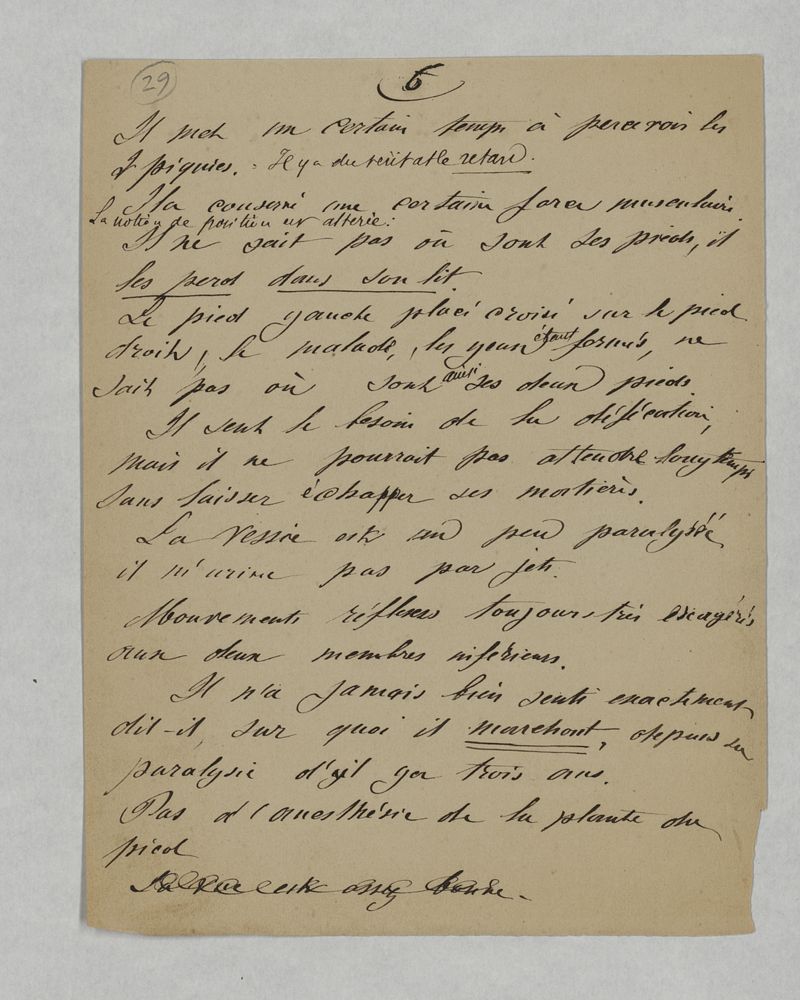 29
6
Il met un certain temps à percevoir les
piqures. - Il y a du véritable retard.
Il a conservé une certaine force musculaire.
La notion de position est altérée :
Il ne sait pas où sont ses pieds, il
les perd dans son lit.
Le pied gauche placé croisé sur le pied
droit, le malade, les yeux étant fermés, ne
sait pas où sont ainsi ses deux pieds.
Il sent le besoin de la défécation,
mais il ne pourrait pas attendre longtemps
sans laisser échapper ses matières.
La vessie est un peu paralysée
il n'urine pas par jets.
Mouvements réflexes toujours très exagérés
aux deux membres inférieurs.
Il n'a jamais bien senti exactement
dit-il, sur quoi il marchait, depuis sa
paralysie d'il y a trois ans.
Pas d'anesthésie de la plante du
pied
La vue est assez bonne.